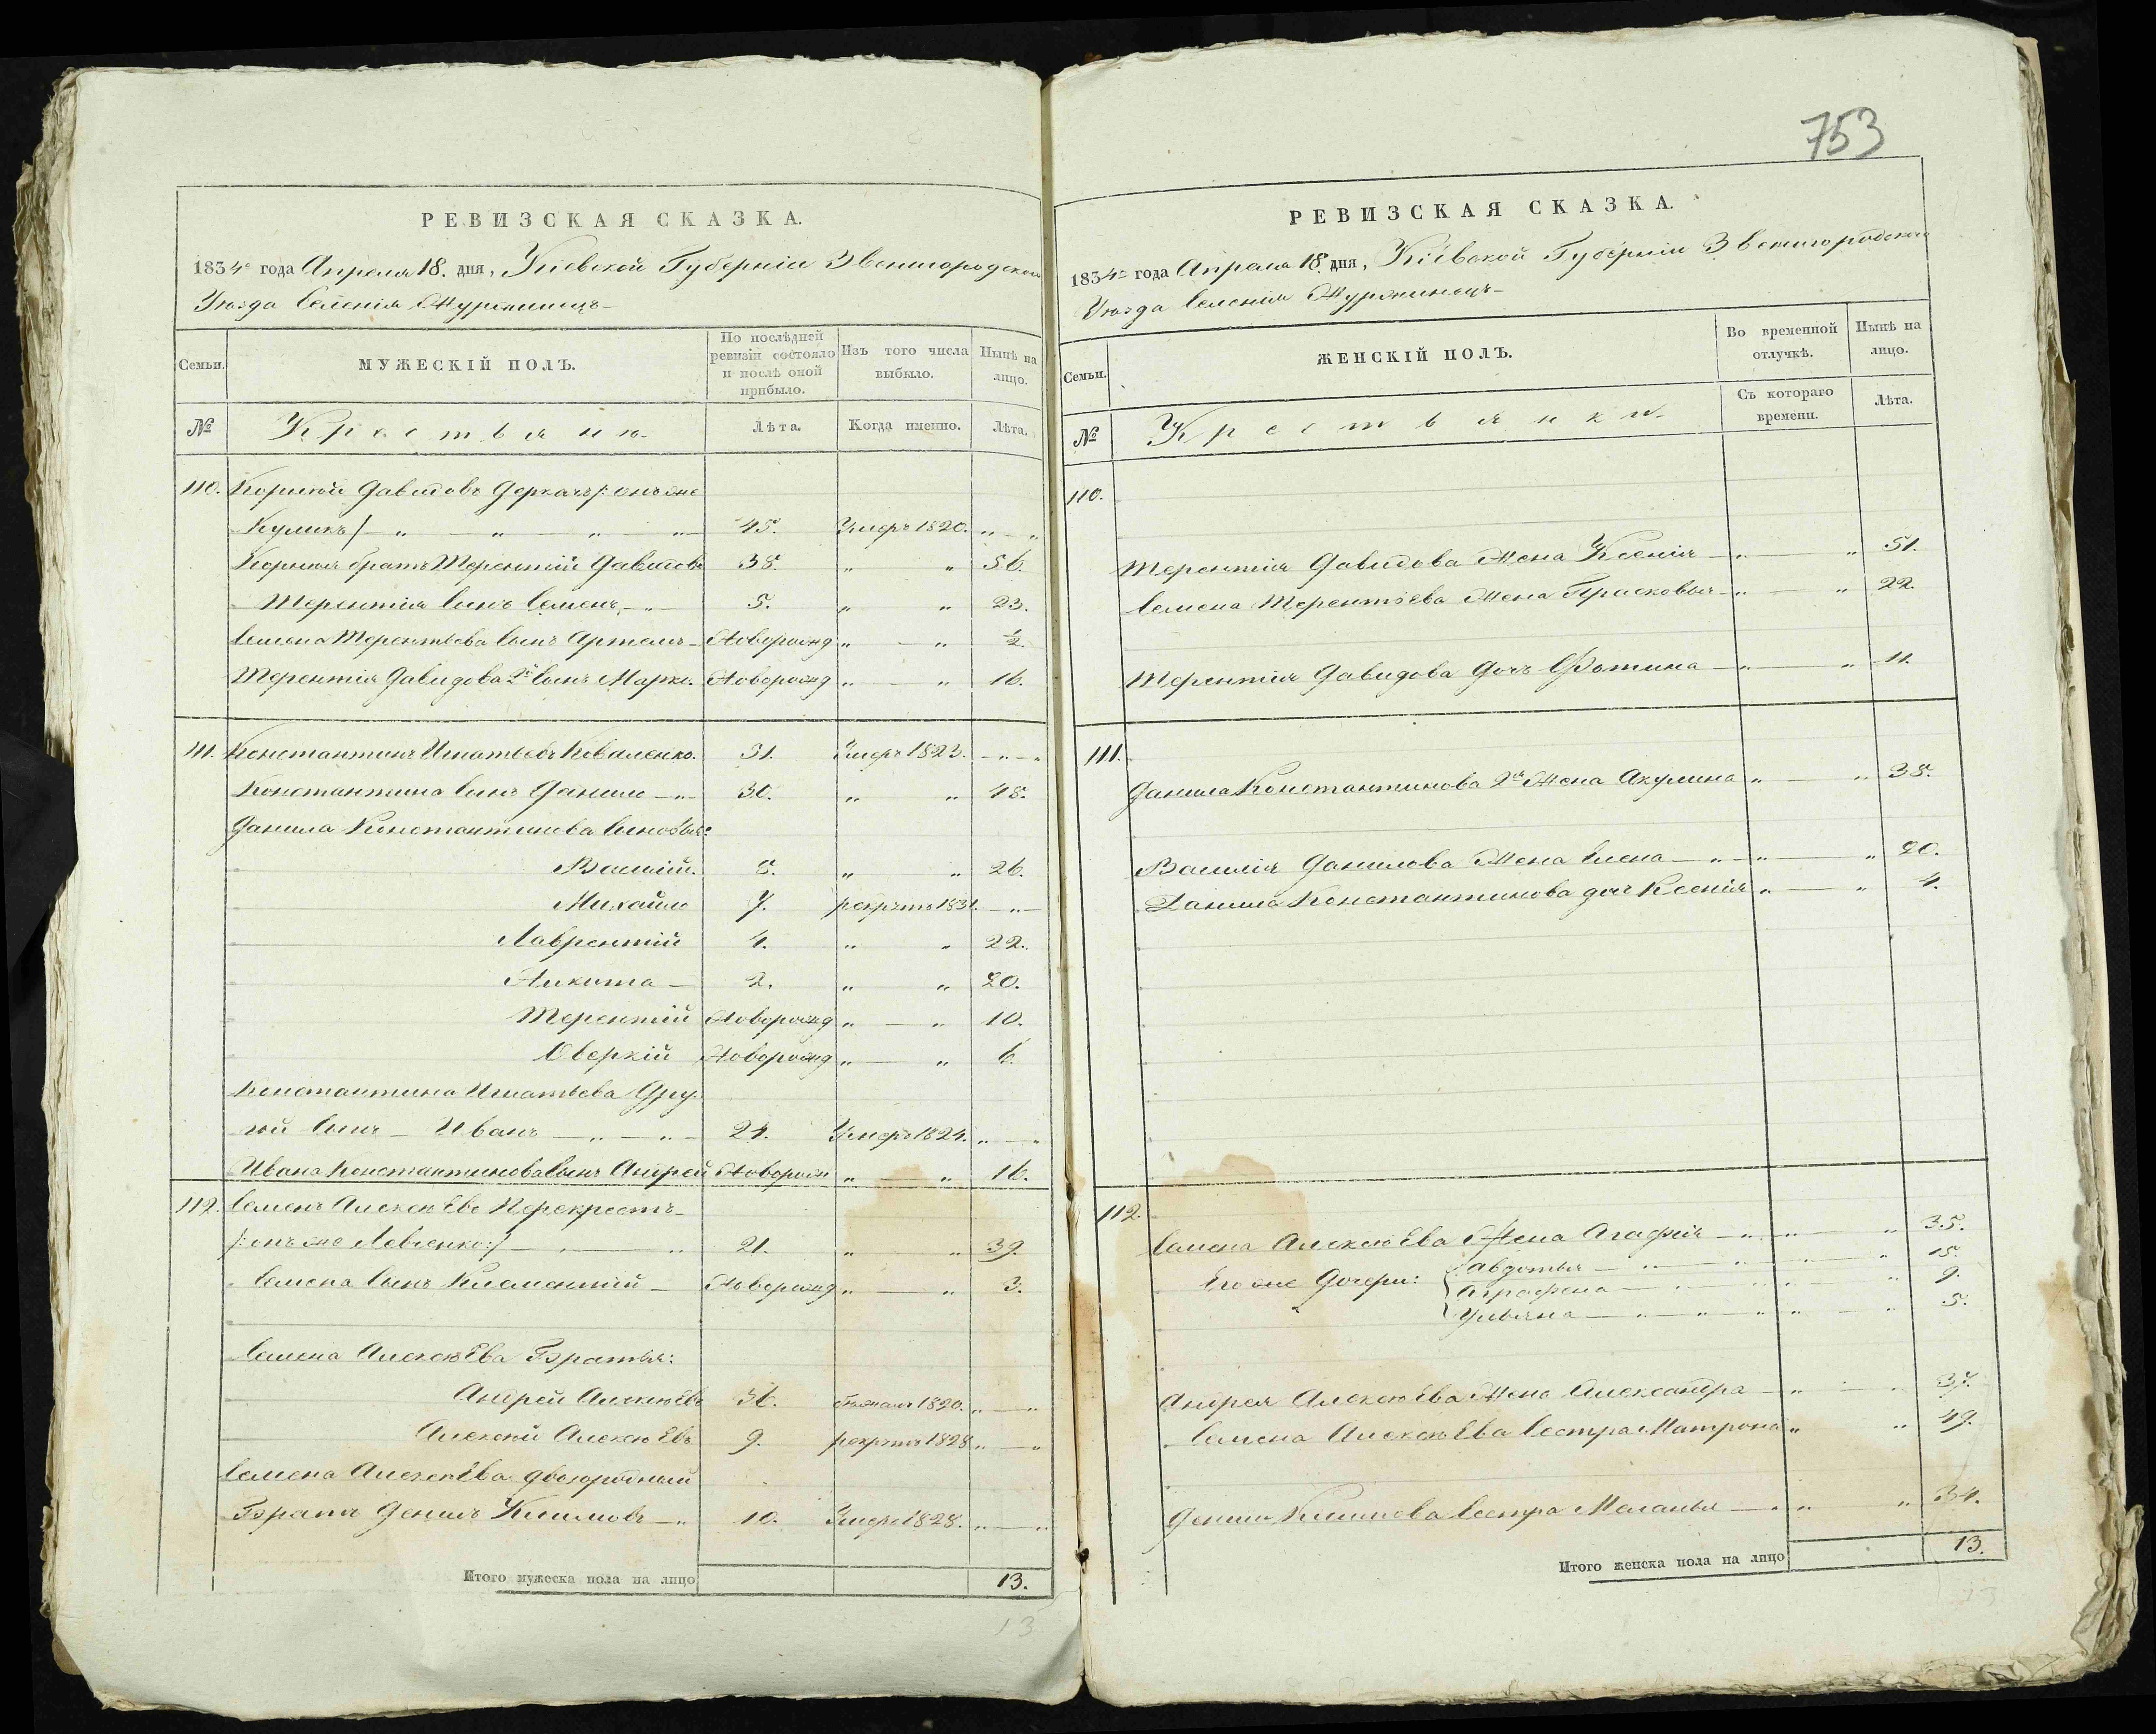 РЕВИЗСКАЯ СКАЗКА.
1834го года Апреля 18. дня, Кіевской Губерніи Звенигородского
Уѣзда Селенія Журжинецъ
Семьи.
МУЖЕСКІЙ ПОЛЪ.
По послѣдней ревизіи состояло и послѣ оной прибыло.
Изъ того числа выбыло.
Нынѣ на лицо.
№
Крестьяне
Лѣта.
Когда именно.
Лѣта.
110. Корнѣй Давидовъ Деркачъ /: онъ же
Куликъ / 45. Умеръ 1820.
Корнія братъ Терентій Давидовъ 35. 56.
Терентія Сынъ Семенъ 5. 23.
Семена Терентьева Сынъ Артемъ Новорожд ½.
Терентія Давидова 2й Сынъ Марко. Новорожд 16.
111. Константинъ Игнатьевъ Коваленко. 51. Умеръ 1823.
Константина Сынъ Данило 30. 48.
Данила Константинова Сыновья:
Василій. 8. 26.
Михайло 7. рекрутъ 1831.
Лаврентій 4. 22.
Никита 2. 20.
Терентій Новорожд 10.
Оверкій Новорожд 6.
Константина Игнатьева Дру
гой Сынъ Иванъ 24. Умеръ 1824.
Ивана Константинова Сынъ Андрей Новорож 16.
112. Семенъ Алексѣевъ Перекрестъ
/: онъ же Левченко :/ 21. 39.
Семена Сынъ Климентій Новорожд 3.
Семена Алексѣева Братья:
Андрей Алексѣевъ 36. бѣжалъ 1820.
Алексѣй Алексѣевъ 9. рекрутъ 1828
Семена Алексѣева двоюродный
Братъ Денисъ Климовъ 10. Умеръ 1828.
Итого мужеска пола на лицо 13.
13
753
РЕВИЗСКАЯ СКАЗКА.
1834го года Апреля 18. дня, Кіевской Губерніи Звенигородского
Уѣзда Селенія Журжинецъ
Семьи.
ЖЕНСКІЙ ПОЛЪ.
Во временной отлучкѣ.
Нынѣ на лицо.
№
Крестьянки
Съ котораго времени.
Лѣта.
110.
Терентія Давидова Жена Ксенія 51.
Семена Терентьева Жена Прасковья 22.
Терентія Давидова Дочь Фотина 11.
111.
Данила Константинова 2я Жена Акулина 35.
Василія Данилова Жена Елена 20.
Данила Константинова доч Ксенія 4.
112.
Семена Алексѣева Жена Агафія 35.
Его же Дочери: Авдотья 15.
Аграфена 9.
Ульяна 5.
Андрея Алексѣева Жена Александра 37.
Семена Алексѣева Сестра Матрона 49.
Дениса Климова Сестра Меланья 34.
Итого женска пола на лицо 13.
13